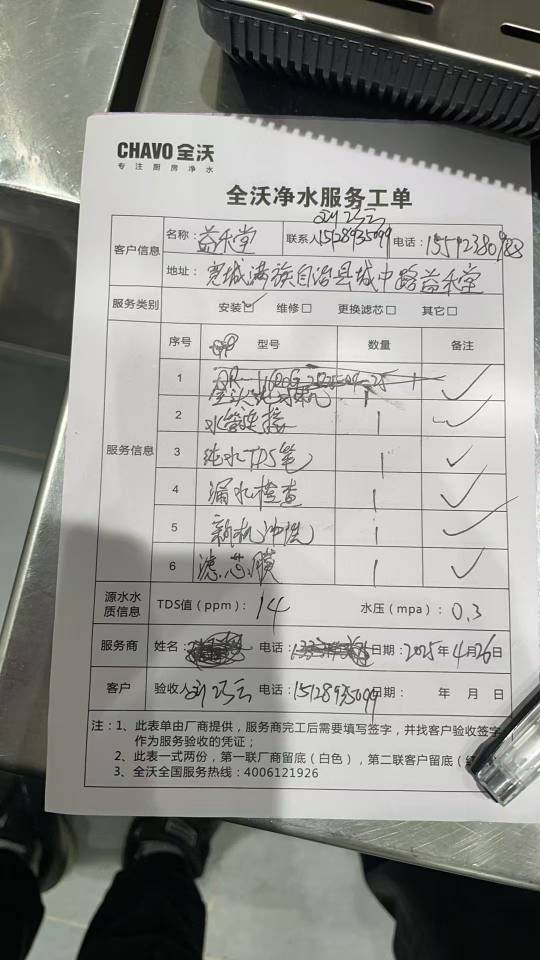 CHAVO 全沃
专注厨房净水
全沃净水服务工单
客户信息 名称：益禾堂 联系人 15128935099 电话：15512380988
地址：宽城满族自治县城中路益禾堂
服务类别 安装☑ 维修□ 更换滤芯□ 其它□
服务信息 序号 型号 数量 备注
1 1 ✓
2 水管连接 1 ✓
3 纯水TDS笔 1 ✓
4 漏水检查 1 ✓
5 新机冲洗 1 ✓
6 滤芯膜 1 ✓
源水水质信息 TDS值（ppm）：14 水压（mpa）：0.3
服务商 姓名： 电话： 日期：2025年4月26日
客户 验收人 刘巧云 电话：15128935099 日期： 年 月 日
注：1、此表单由厂商提供，服务商完工后需要填写签字，并找客户验收签字
作为服务验收的凭证；
2、此表一式两份，第一联厂商留底（白色），第二联客户留底（
3、全沃全国服务热线：4006121926